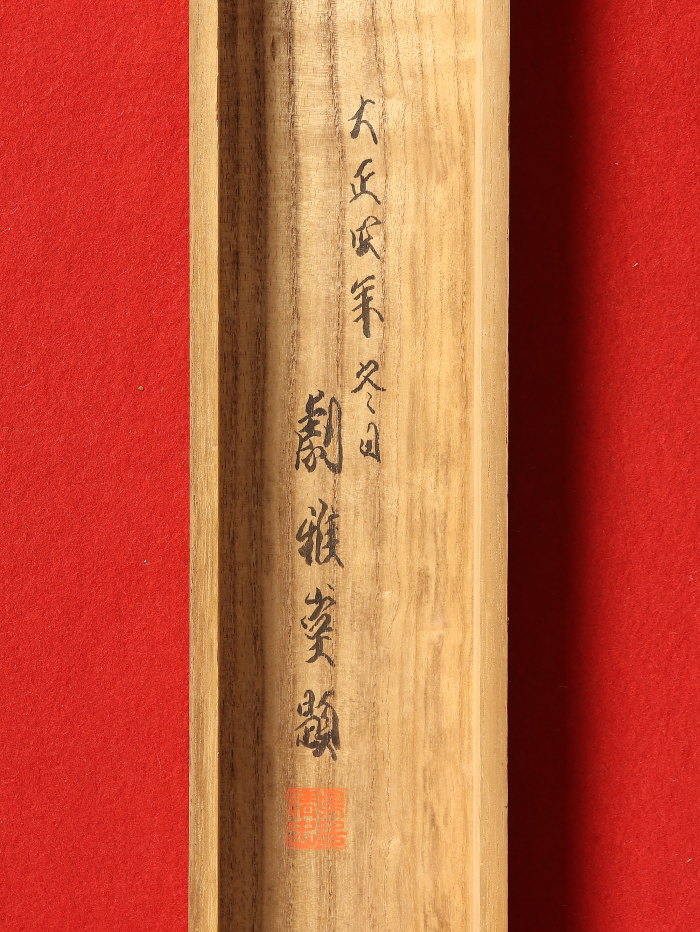 大正四年冬日
劇雅堂題